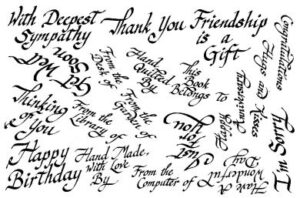 With Deepest
Sympathy
Thank You
Friendship
is a
Gift
Get Well
Soon
From the
Book of
Hand
Quilted
By
This
Book
Belongs
to
Congratulations
Hugs and Kisses
Happy
Anniversary
Thinking
of You
From the
Library of
From the
Garden of
Just
For
You
I'm Sorry
Happy
Birthday
Hand Made,
With Love
By
From the
Computer of
Have A
Wonderful
Day